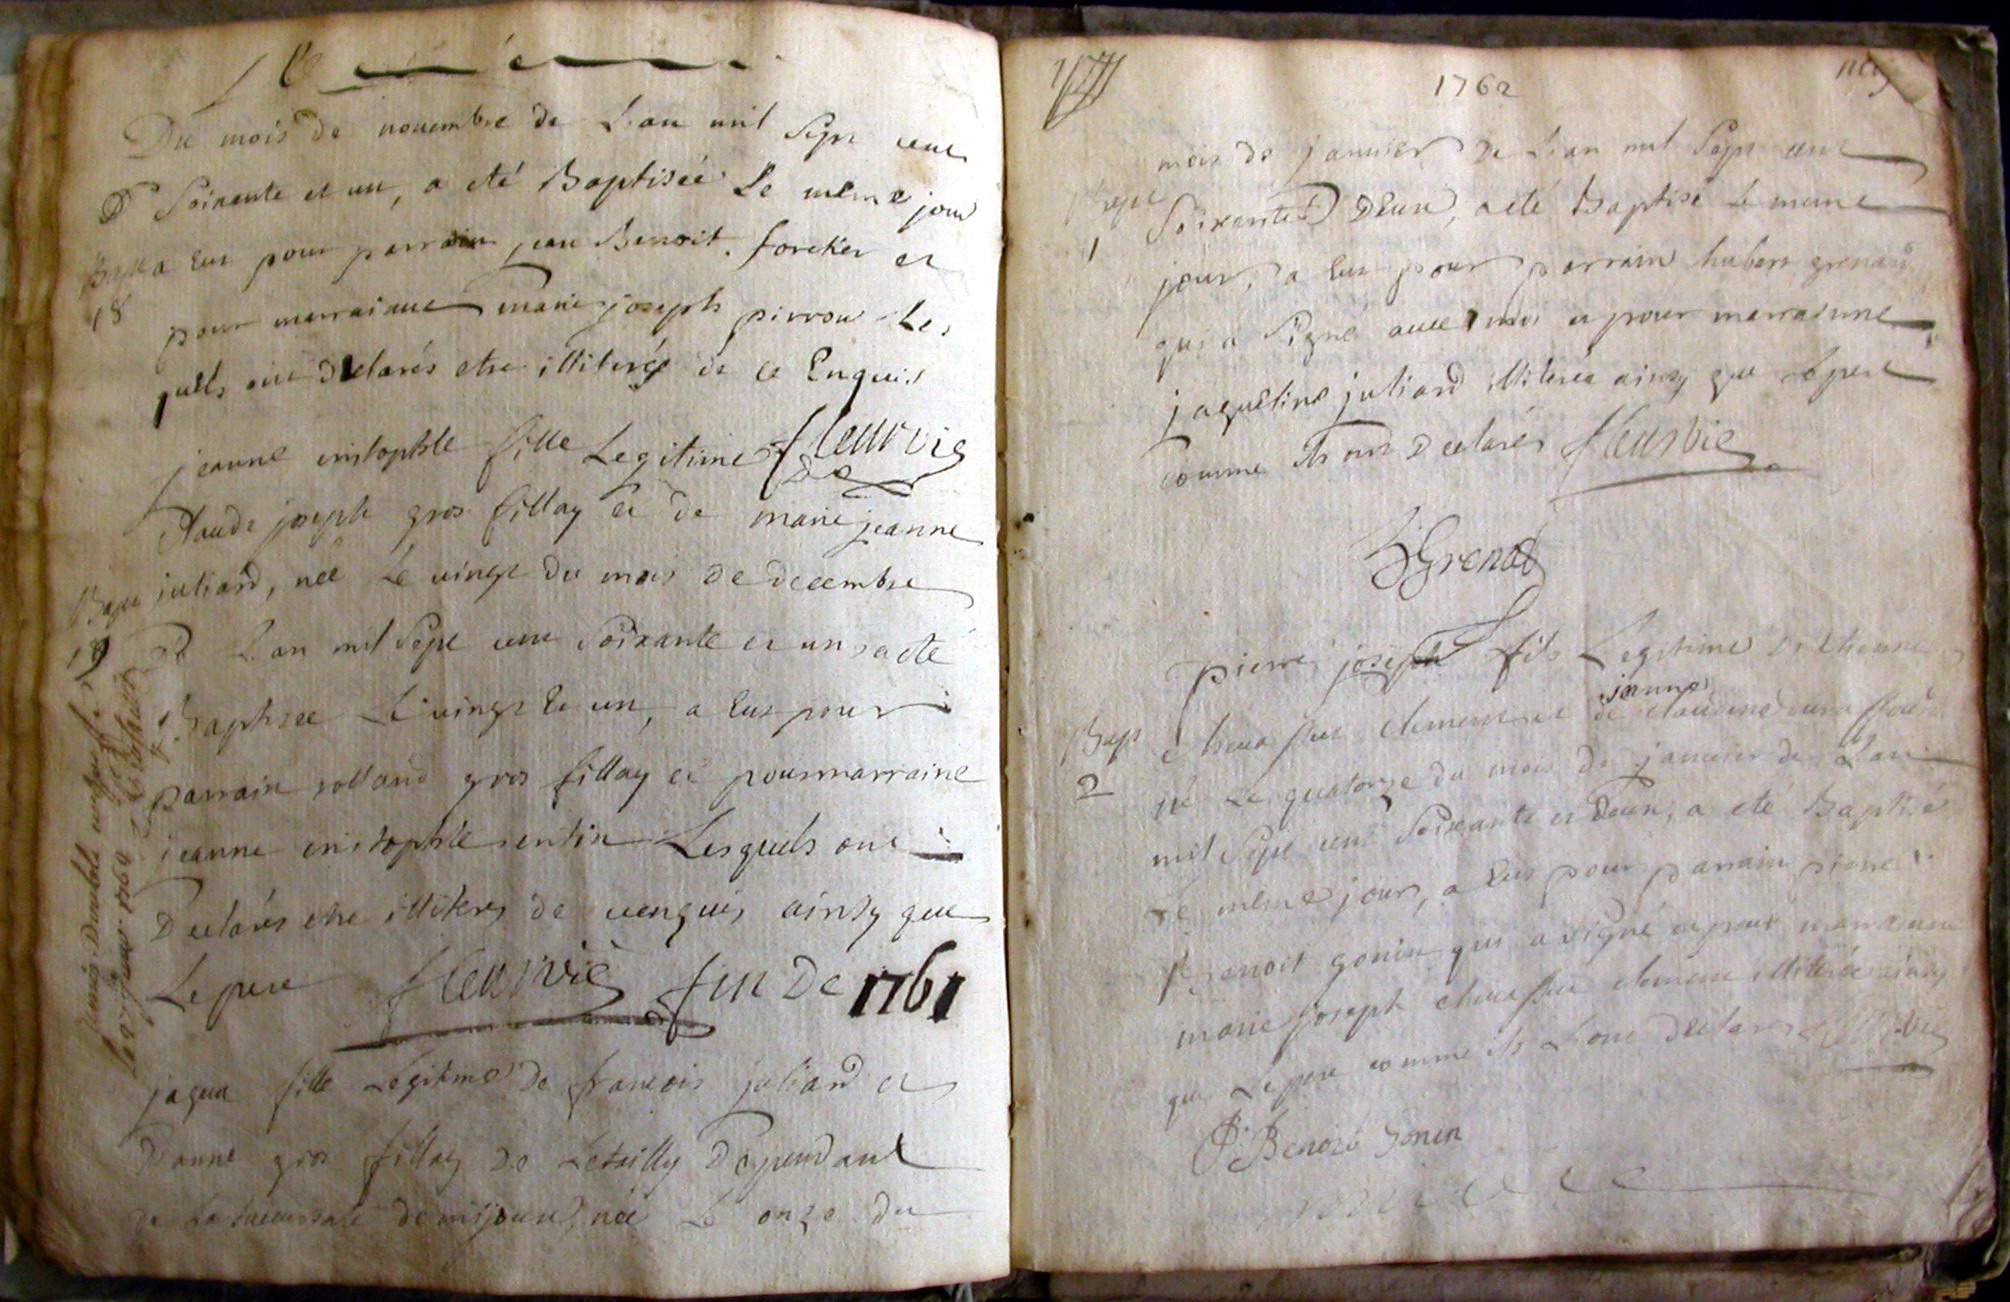 Du mois de novembre de L'an mil Sept cent
Soixante et un, a eté Baptisée Le même jour
Bapt a Eut pour parrain jean Benoit foretier et
18
pour marraine marie joseph pirrou Les
quels ont Declarés etre illiterés de ce Enquis
fleurvie
jeanne cristophle fille Legitime de
Claude joseph gros fillay et de marie jeanne
Bapt juliard, née Le vingt du mois de decembre
19
de L'an mil Sept cent Soixante et un, a eté
Baptisée Le vingt et un, a Eut pour
parrain rolland gros fillay et pour marraine
jeanne cristophle Lesquels ont
Declarés etre illiteres de ce enquis ainsy que
Le pere fleurvie fin De 1761
jaqua fille Legitime de francois juliard et
D'anne gros fillay de Dependant
de La succursale de mijoux, née Le onze du
1762
mois de janvier de L'an mil Sept cent
Bapt
1
Soixante et Deux, a eté Baptisé Le meme
jour, a Eut pour parrain hubert grenard
qui a Signé avec moi et pour marrainne
jaqueline juliard illiterée ainsy que Le pere
comme ils ont Declarés fleurvie
Grenad
pierre joseph fils Legitime D'Etienne
Bapt
2
clement et de jeanne claudine
né Le quatorze du mois de janvier de L'an
mil Sept cent Soixante et Deux, a eté Baptisé
Le même jour, a Eut pour parrain pierre
Benoit gonin qui a signé et pour marrainne
marie joseph clement illiterée ainsy
que Le pere comme ils L'ont Declarés fleurvie
P. Benoit Gonin